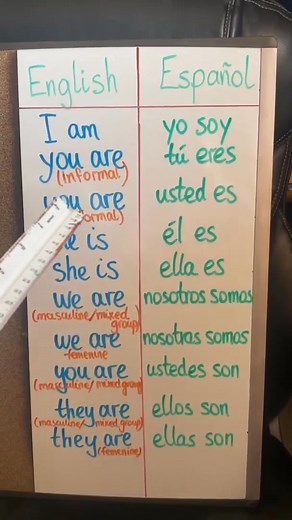 English Español
I am yo soy
you are tú eres
(informal)
you are usted es
is él es
she is ella es
we are nosotros somos
(masculine/mixed group)
we are nosotras somos
-femenine
you are ustedes son
(masculine/mixed group)
they are ellos son
(masculine/mixed group)
they are ellas son
(femenine)